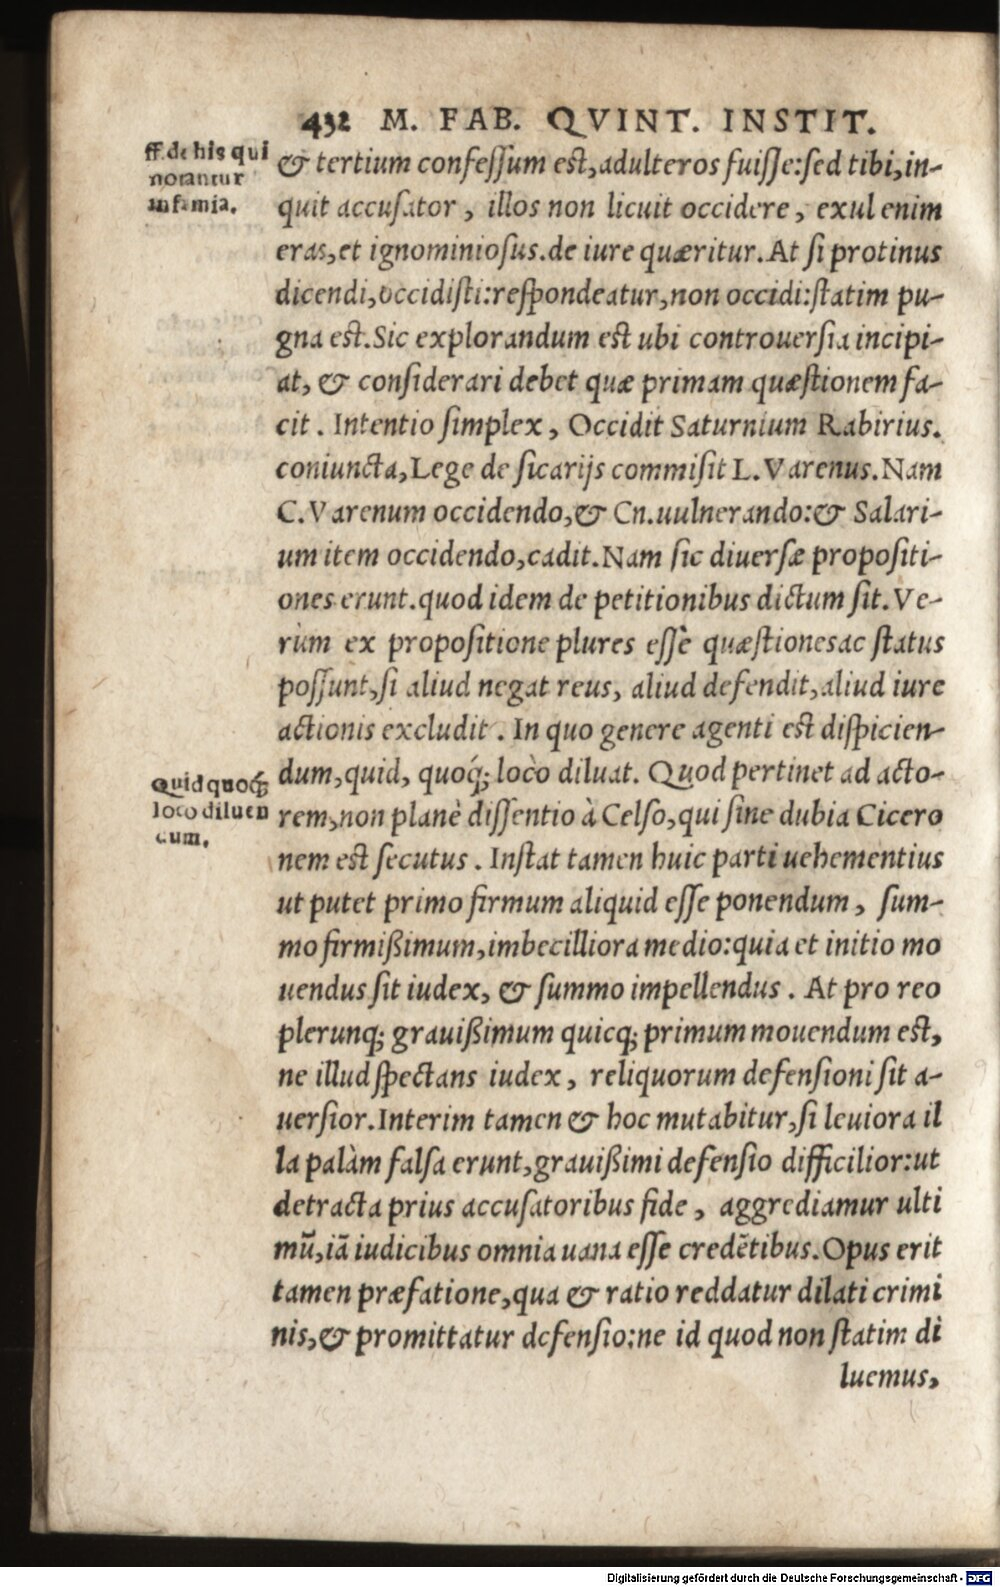 432 M. FAB. QVINT. INSTIT.
ff. de his qui
notantur
infamia.
& tertium confessum est, adulteros fuisse: sed tibi, in-
quit accusator, illos non licuit occidere, exul enim
eras, et ignominiosus. de iure quæritur. At si protinus
dicendi, occidisti: respondeatur, non occidi: statim pu-
gna est. Sic explorandum est ubi controuersia incipi-
at, & considerari debet quæ primam quæstionem fa-
cit. Intentio simplex, Occidit Saturnium Rabirius.
coniuncta, Lege de sicarijs commisit L. Varenus. Nam
C. Varenum occidendo, & Cn. uulnerando: & Salari-
um item occidendo, cadit. Nam sic diuersæ propositi-
ones erunt. quod idem de petitionibus dictum sit. Ve-
rùm ex propositione plures essè quæstiones ac status
possunt, si aliud negat reus, aliud defendit, aliud iure
actionis excludit. In quo genere agenti est dispicien-
Quid quoq;
loco diluen
dum.
dum, quid, quoq́; loco diluat. Quod pertinet ad acto-
rem, non planè dissentio à Celso, qui sine dubia Cicero
nem est secutus. Instat tamen huic parti uehementius
ut putet primo firmum aliquid esse ponendum, sum-
mo firmißimum, imbecilliora medio: quia et initio mo
uendus sit iudex, & summo impellendus. At pro reo
plerunq; grauißimum quicq; primum mouendum est,
ne illud spectans iudex, reliquorum defensioni sit a-
uersior. Interim tamen & hoc mutabitur, si leuiora il
la palàm falsa erunt, grauißimi defensio difficilior: ut
detracta prius accusatoribus fide, aggrediamur ulti
mū, iā iudicibus omnia uana esse credētibus. Opus erit
tamen præfatione, qua & ratio reddatur dilati crimi
nis, & promittatur defensio: ne id quod non statim di
luemus,
Digitalisierung gefördert durch die Deutsche Forschungsgemeinschaft - DFG